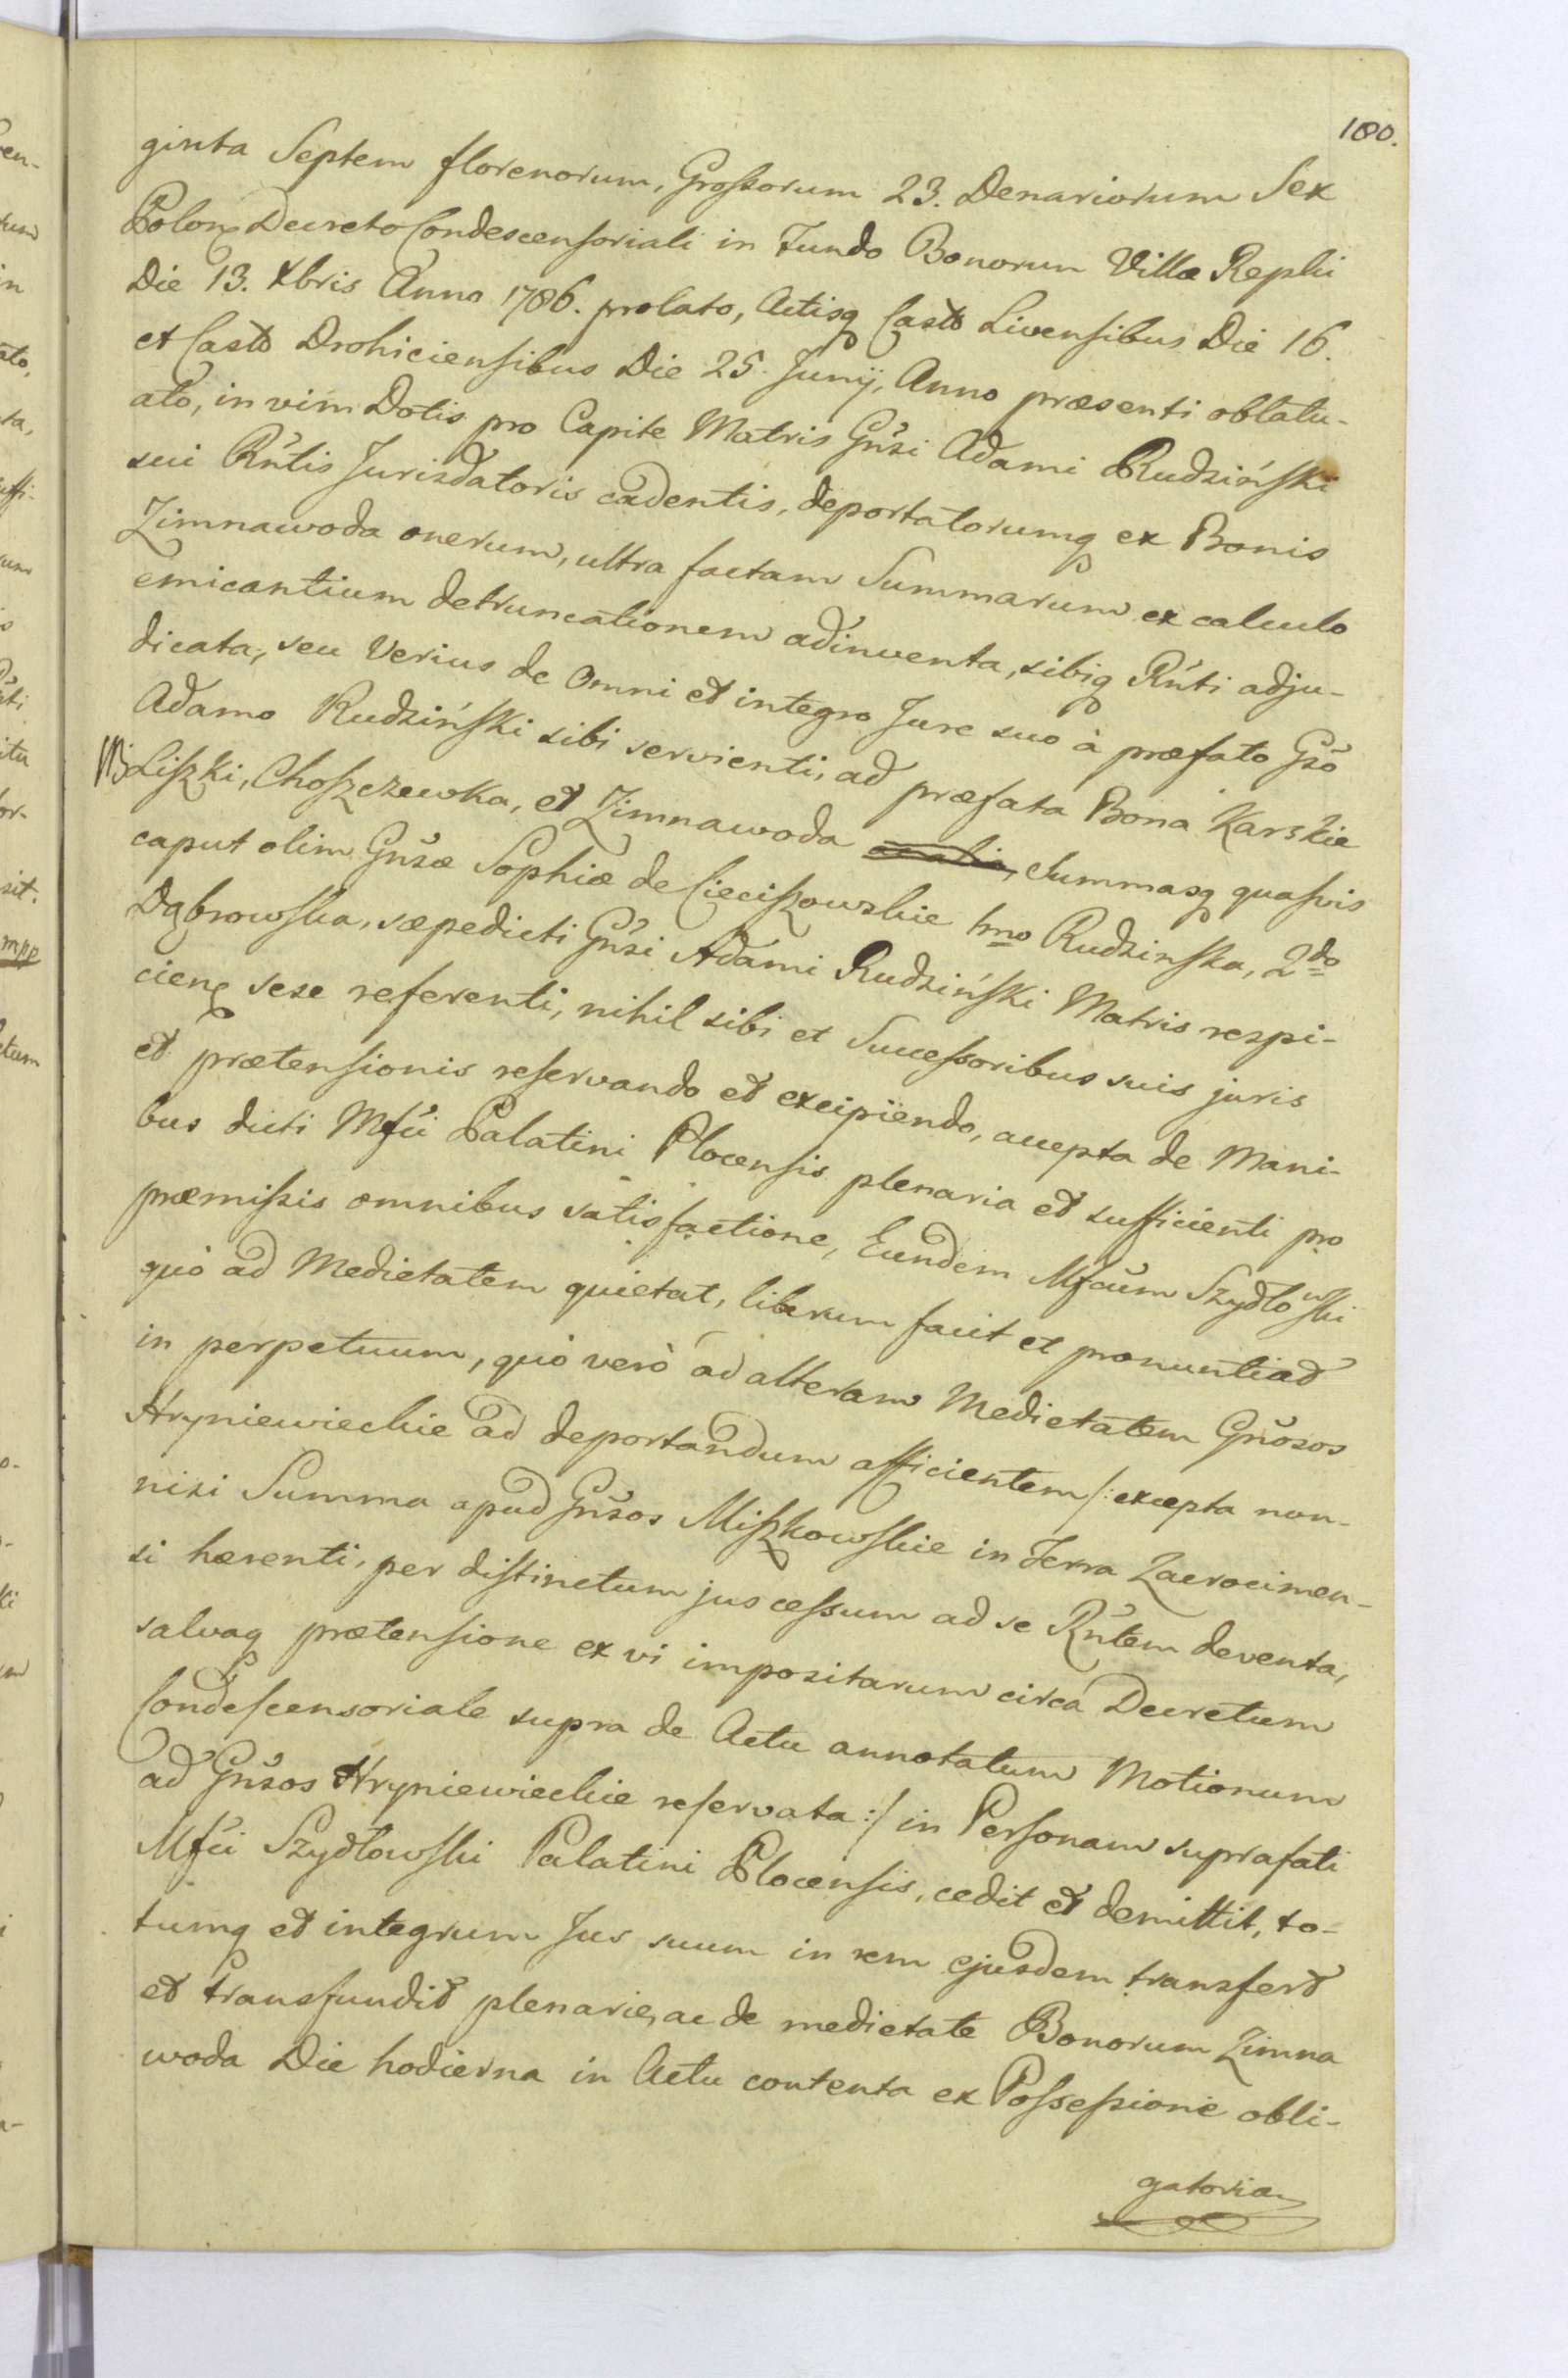 180.
ginta Septem florenorum, Grossorum 23. Denariorum Sex
Polonͤ Decreto Condescensoriali in Fundo Bonorum Villæ Repki
Die 13. Xbris Anno 1786. prolato, Actisq Castr̃ Livensibus Die 16.
et Castr̃ Drohiciensibus Die 25. Junij, Anno præsenti oblatu-
ato, in vim Dotis pro Capite Matris Gñsi Adami Rudziński
sui Rñtis Jurisdatoris cadentis, deportatorumq ex Bonis
Zimnawoda onerum, ultra factam Summarum ex calculo
emicantium detruncationem adinventa, sibiq Rñti adju-
dicata, seu Verius de omni et integro Jure suo à præfato Gsõ
Adamo Rudziński sibi servienti, ad præfata Bona Karskie
Liszki, Choszczewka, et Zimnawoda, Summasq quasvis
caput olim Gñsæ Sophiæ de Cieciszowskie 1mo Rudzinska, 2do
Dąbrowska, sæpedicti Gñsi Adami Rudziński Matris respi-
cienͤ sese referenti, nihil sibi et Successoribus suis juris
et prætensionis reservando et excipiendo, accepta de Mani-
bus dicti Mfci Palatini Plocensis plenaria et sufficienti pro
præmissis omnibus satisfactione, Eundem Mfcum Szydłowski
quò ad Medietatem quietat, liberum facit et pronuntiat
in perpetuum, quò verò ad alteram Medietatem Gñosos
Hryniewieckie ad deportandum afficientem /: excepta non-
nisi Summa apud Gñsos Miszkowskie in Terra Zacrocimen-
si hærenti, per distinctum jus cessum ad se Rñtem deventa,
salvaq prætensione ex vi impositarum circa Decretum
Condescensoriale supra de Actu annotatum Motionum
ad Gñsos Hryniewieckie reservata :/ in Personam suprafati
Mfci Szydłowski Palatini Plocensis, cedit et demittit, to-
tumq et integrum Jus suum in rem ejusdem transfert
et transfundit plenarie, ac de medietate Bonorum Zimna
woda Die hodierna in Actu contenta ex Possessione obli-
gatoria